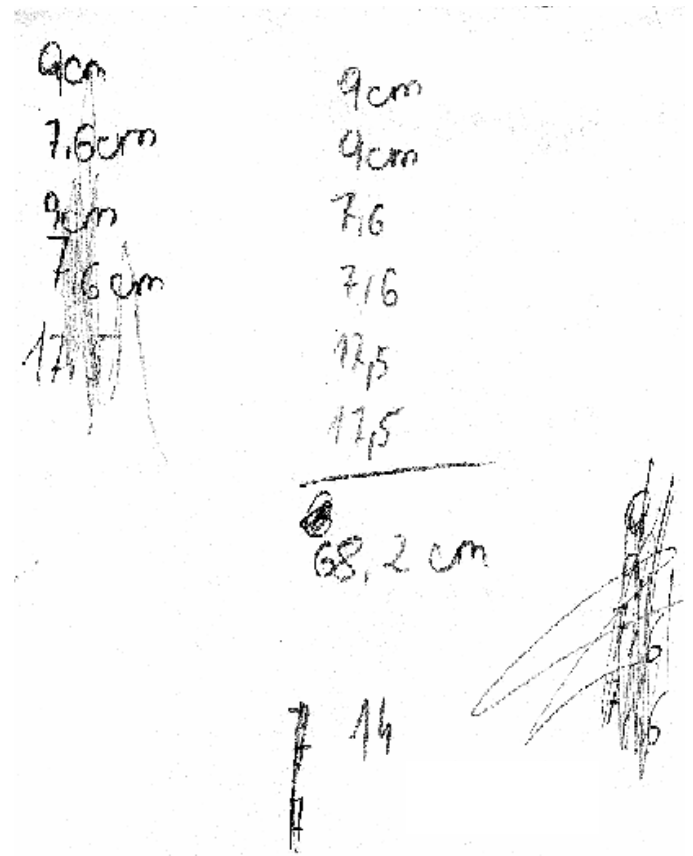 9cm
7,6cm
9cm
7,6 cm
9cm
9cm
7,6
7,6
17,5
17,5
68,2 cm
14